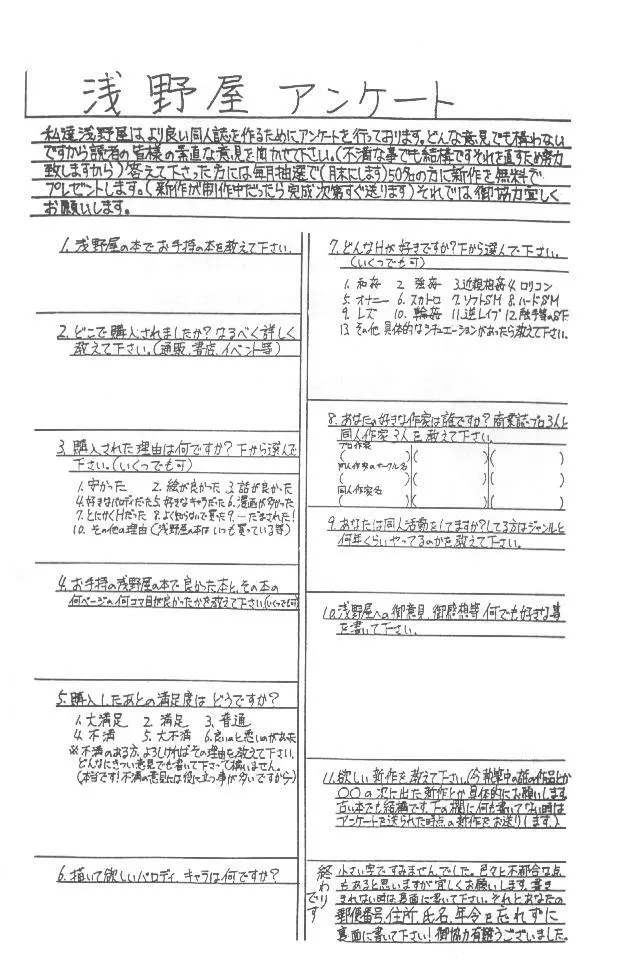 浅野屋 アンケート
私達浅野屋はより良い同人誌を作るためにアンケートを行っております。どんな意見でも構わない
ですから読者の皆様の素直な意見を聞かせて下さい。(不満な事でも結構ですそれを直すため努力
致しますから)答えて下さった方には毎月抽選で(月末にします)50名の方に新作を無料で
プレゼントします。(新作が制作中だったら完成次第すぐ送ります)それでは御協力宜しく
お願いします。
1. 浅野屋の本でお手持の本を教えて下さい.
2. どこで購入されましたか?なるべく詳しく
教えて下さい。(通販、書店、イベント等)
3. 購入された理由は何ですか?下から選んで
下さい。(いくつでも可)
1. 安かった 2. 絵が良かった 3. 話が良かった
4. 好きなパロディだった 5. 好きなキャラだった 6. 漫画が多かった
7. とにかくHだった 8. よく知らないで買った 9. …だまされた!
10. その他の理由(浅野屋の本はいつも買っている等)
4. お手持の浅野屋の本で良かった本と、その本の
何ページの何コマ目が良かったかを教えて下さい(いくつでも可)
5. 購入したあとの満足度はどうですか?
1. 大満足 2. 満足 3. 普通
4. 不満 5. 大不満 6. 良いのと悪いのがあった
※不満のある方、よろしければその理由を教えて下さい。
どんなにきつい意見でも書いて下さって構いません。
(本当です!不満の意見には役に立つ事が多いですから)
6. 描いて欲しいパロディ、キャラは何ですか?
7. どんなHが好きですか?下から選んで下さい。
(いくつでも可)
1. 和姦 2. 強姦 3. 近親相姦 4. ロリコン
5. オナニー 6. スカトロ 7. ソフトSM 8. ハードSM
9. レズ 10. 輪姦 11. 逆レイプ 12. 触手等のSF
13. その他 具体的なシチュエーションがあったら教えて下さい.
8. あなたの好きな作家は誰ですか?商業誌・プロ3人と
同人作家3人を教えて下さい。
プロ作家
( )( )( )
同人作家のサークル名
( )( )( )
同人作家名
( )( )( )
9. あなたは同人活動をしてますか?してる方はジャンルと
何年くらいやってるのかを教えて下さい。
10. 浅野屋への御意見、御感想等何でも好きな事
を書いて下さい。
11. 欲しい新作を教えて下さい。(今執筆中の話の作品とか
〇〇の次に出た新作とか具体的にお願いします
古い本でも結構です。下の欄に何も書いてない時は
アンケートを送られた時点の新作をお送りします。)
終わりです
小さい字ですみませんでした。色々と不都合な点
もあると思いますが宜しくお願いします。書き
きれない時は裏面に書いて下さい。それとあなたの
郵便番号、住所、氏名、年令を忘れずに
裏面に書いて下さい!御協力有難うございました。